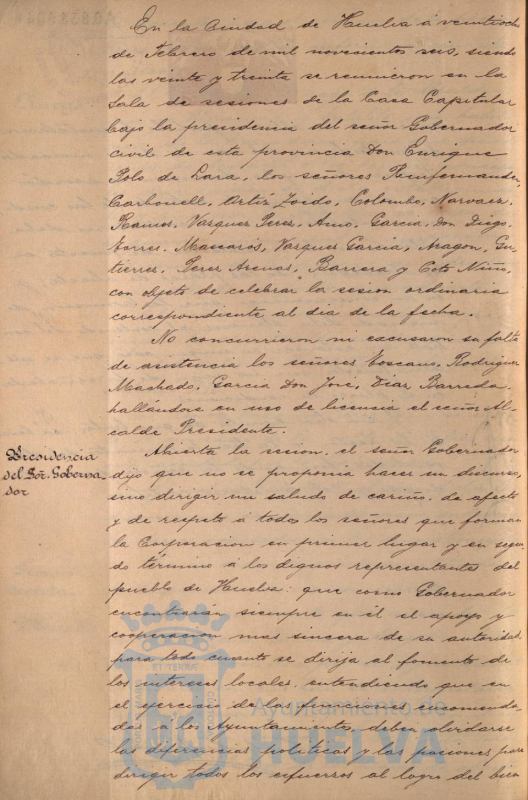 En la Ciudad de Huelva á veintiocho
de Febrero de mil novecientos seis, siendo
las veinte y treinta se reunieron en la
Sala de sesiones de la Casa Capitular
bajo la presidencia del señor Gobernador
civil de esta provincia Don Enrique
Polo de Lara, los señores
Carbonell, Ortiz Zoido, Colombo, Narvaez,
Ramos, Vazquez Perez, Amo, Garcia Don Diego,
Torres, Mascarós, Vazquez Garcia, Aragon, Gu-
tierrez, Perez Arenas, Barrera y Coto Niño,
con objeto de celebrar la sesion ordinaria
correspondiente al dia de la fecha.
No concurrieron ni escusaron su falta
de asistencia los señores Toscano, Rodriguez
Machado, Garcia Don José, Diaz Barreda,
hallándose en uso de licencia el señor Al-
calde Presidente.
Presidencia
del Sor. Goberna-
dor
Abierta la sesion, el señor Gobernador
dijo que no se proponia hacer un discurso,
sino dirigir un saludo de cariño, de afecto
y de respeto á todos los señores que forman
la Corporacion en primer lugar y en segun-
do término á los dignos representantes del
pueblo de Huelva: que como Gobernador
encontrarán siempre en él el apoyo y
cooperacion mas sincera de su autoridad
para todo cuanto se dirija al fomento de
los intereses locales, entendiendo que en
el ejercicio de las funciones encomenda-
das á los Ayuntamientos, deben olvidarse
las diferencias politicas y las pasiones para
dirigir todos los esfuerzos al logro del bien
Ayuntamiento de
HUELVA